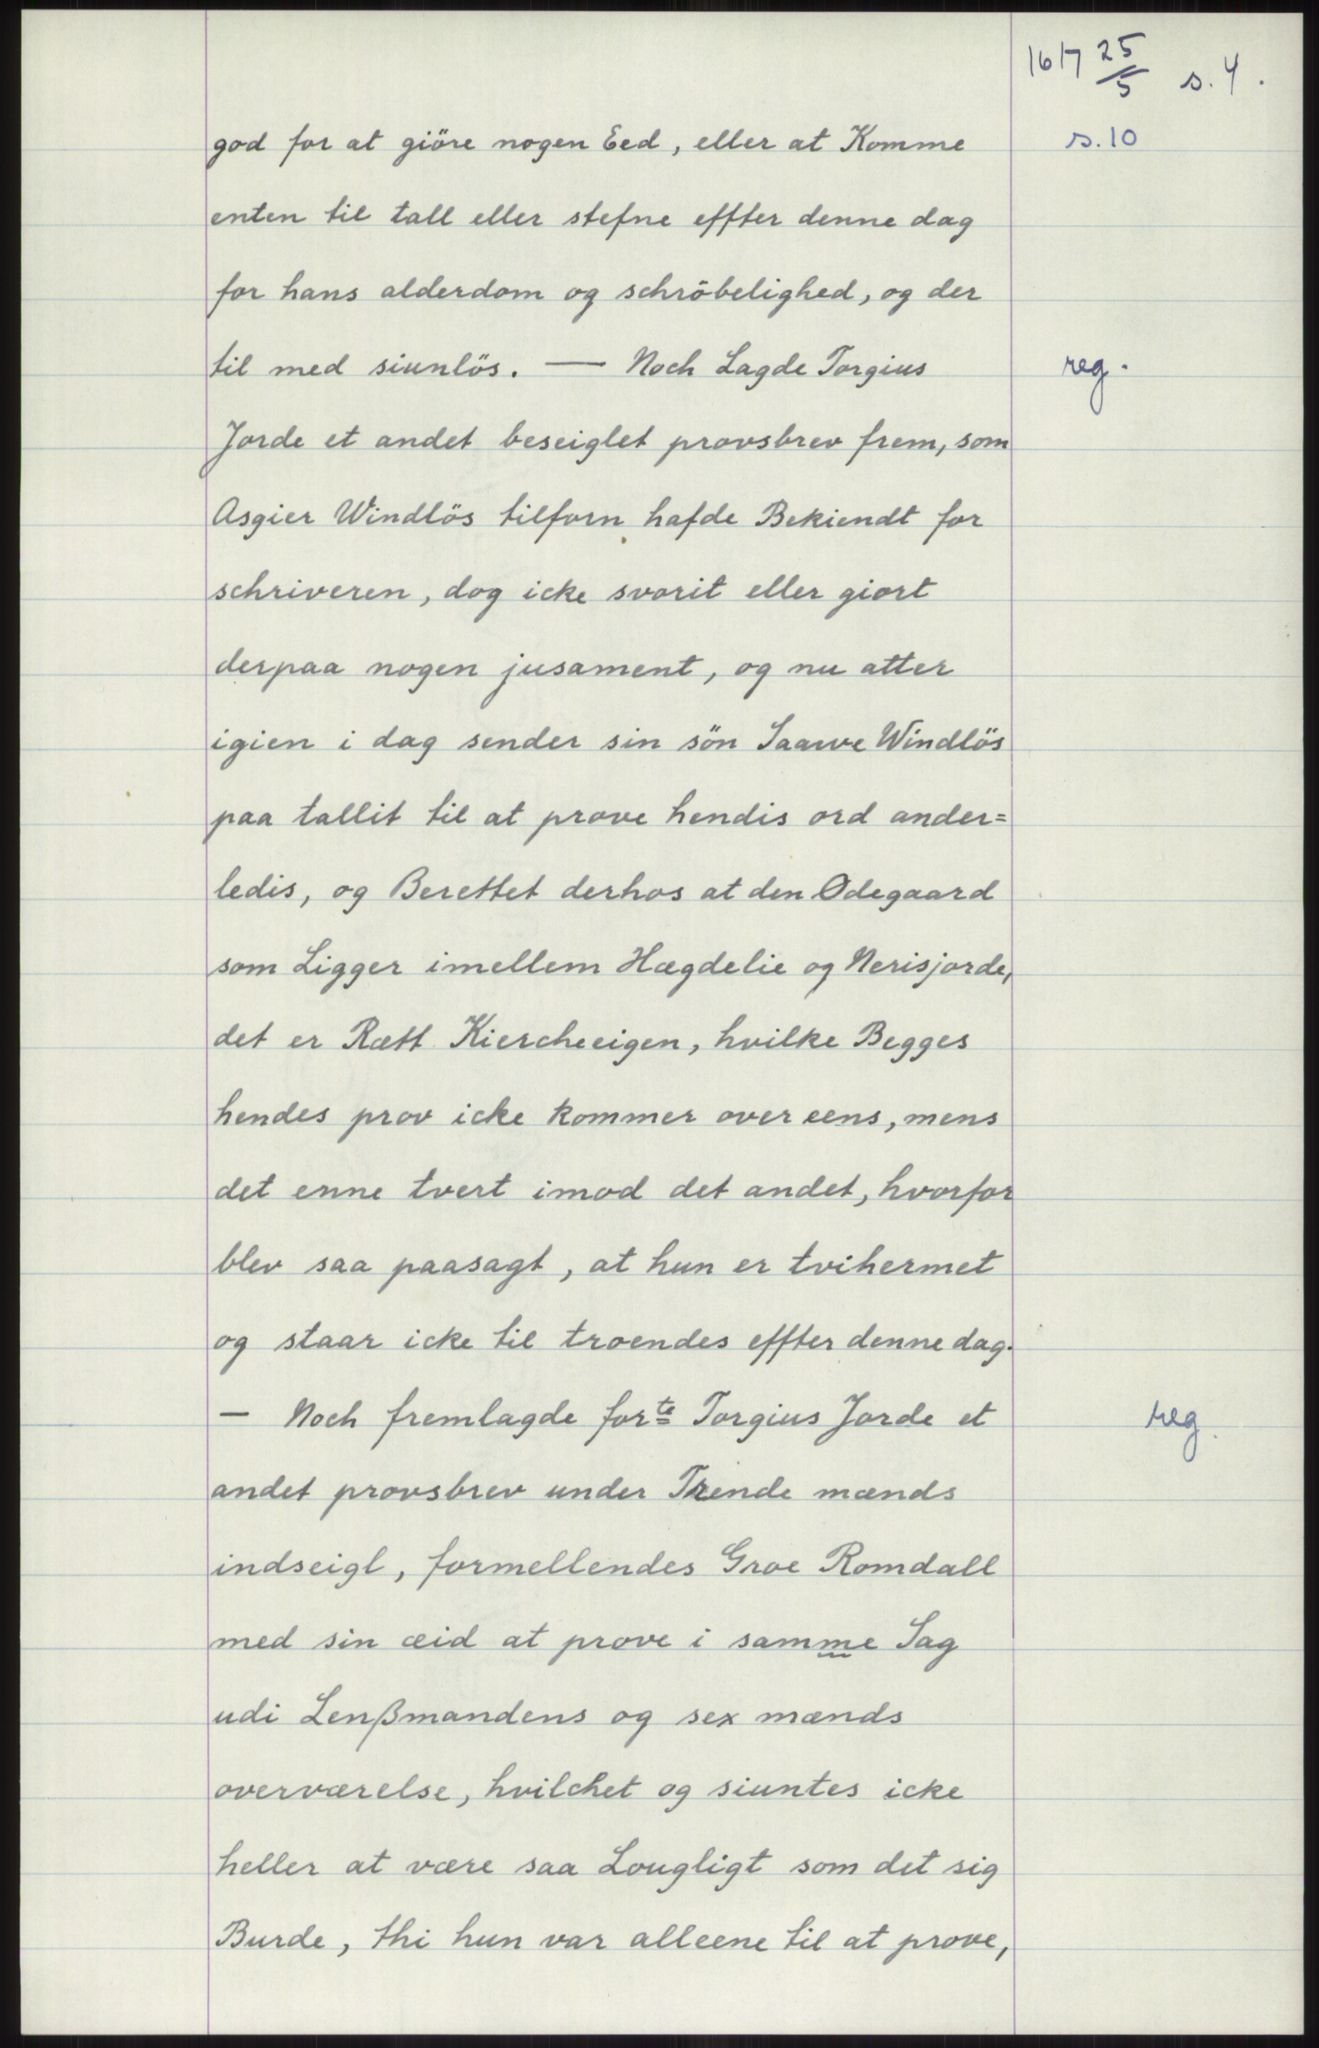 1617 25/5 s. 4.
s. 10
god for at giöre nogen Eed, eller at Komme
enten til tall eller stefne effter denne dag
for hans alderdom og schröbelighed, og der
til med siunlös. — Noch Lagde Torgius
reg.
Jorde et andet beseiglet provsbrev frem, som
Asgier Windlös tilforn hafde Bekiendt for
schriveren, dog icke svorit eller giort
derpaa nogen jusament, og nu atter
igien i dag sender sin sön Saarve Windlös
paa tallit til at prove hendis ord ander=
ledis, og Berettet derhos at den Ødegaard
som Ligger imellem Hægdelie og Nerisjorde,
det er Rætt Kiercheeigen, hvilke Begges
hendes prov icke kommer over eens, mens
det enne tvert imod det andet, hvorfor
blev saa paasagt, at hun er tvihermet
og staar icke til troendes effter denne dag.
— Noch fremlagde forte Torgius Jorde et
reg.
andet provsbrev under Trende mænds
indseigl, formellendes Groe Romdall
med sin æid at prove i samme Sag
udi Lenßmandens og sex mænds
overværelse, hvilchet og siuntes icke
heller at være saa Lougligt som det sig
Burde, thi hun var alleene til at prove,